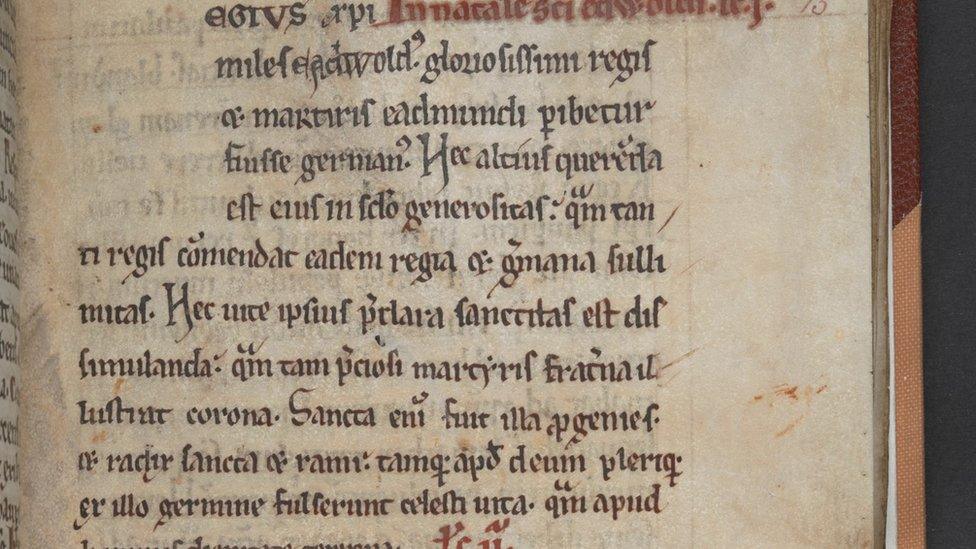 EGIVS xp̅i In natale sc̅i edwoldi. lc̅. j. 13
miles eadwold᷒ gloriosissimi regis
& martiris eadmundi ꝑhibetur
fuisse german᷒. Hec altius querenda
est eius in sc̅lo generositas: qͣm tan
ti regis co̅mendat eadem regia & g̅mana subli
mitas. Hec uite ipsius p̅clara sanctitas est dis
simulanda: qͣm tam p̅ciosi martyris frat̅na il
lustrat corona. Sancta eni̅ fuit illa ꝓgenies.
& radix sancta & rami: tamqͣ apd̅ deum pleriqꝫ
ex illo germine fulserunt celesti uita. qͣm apud